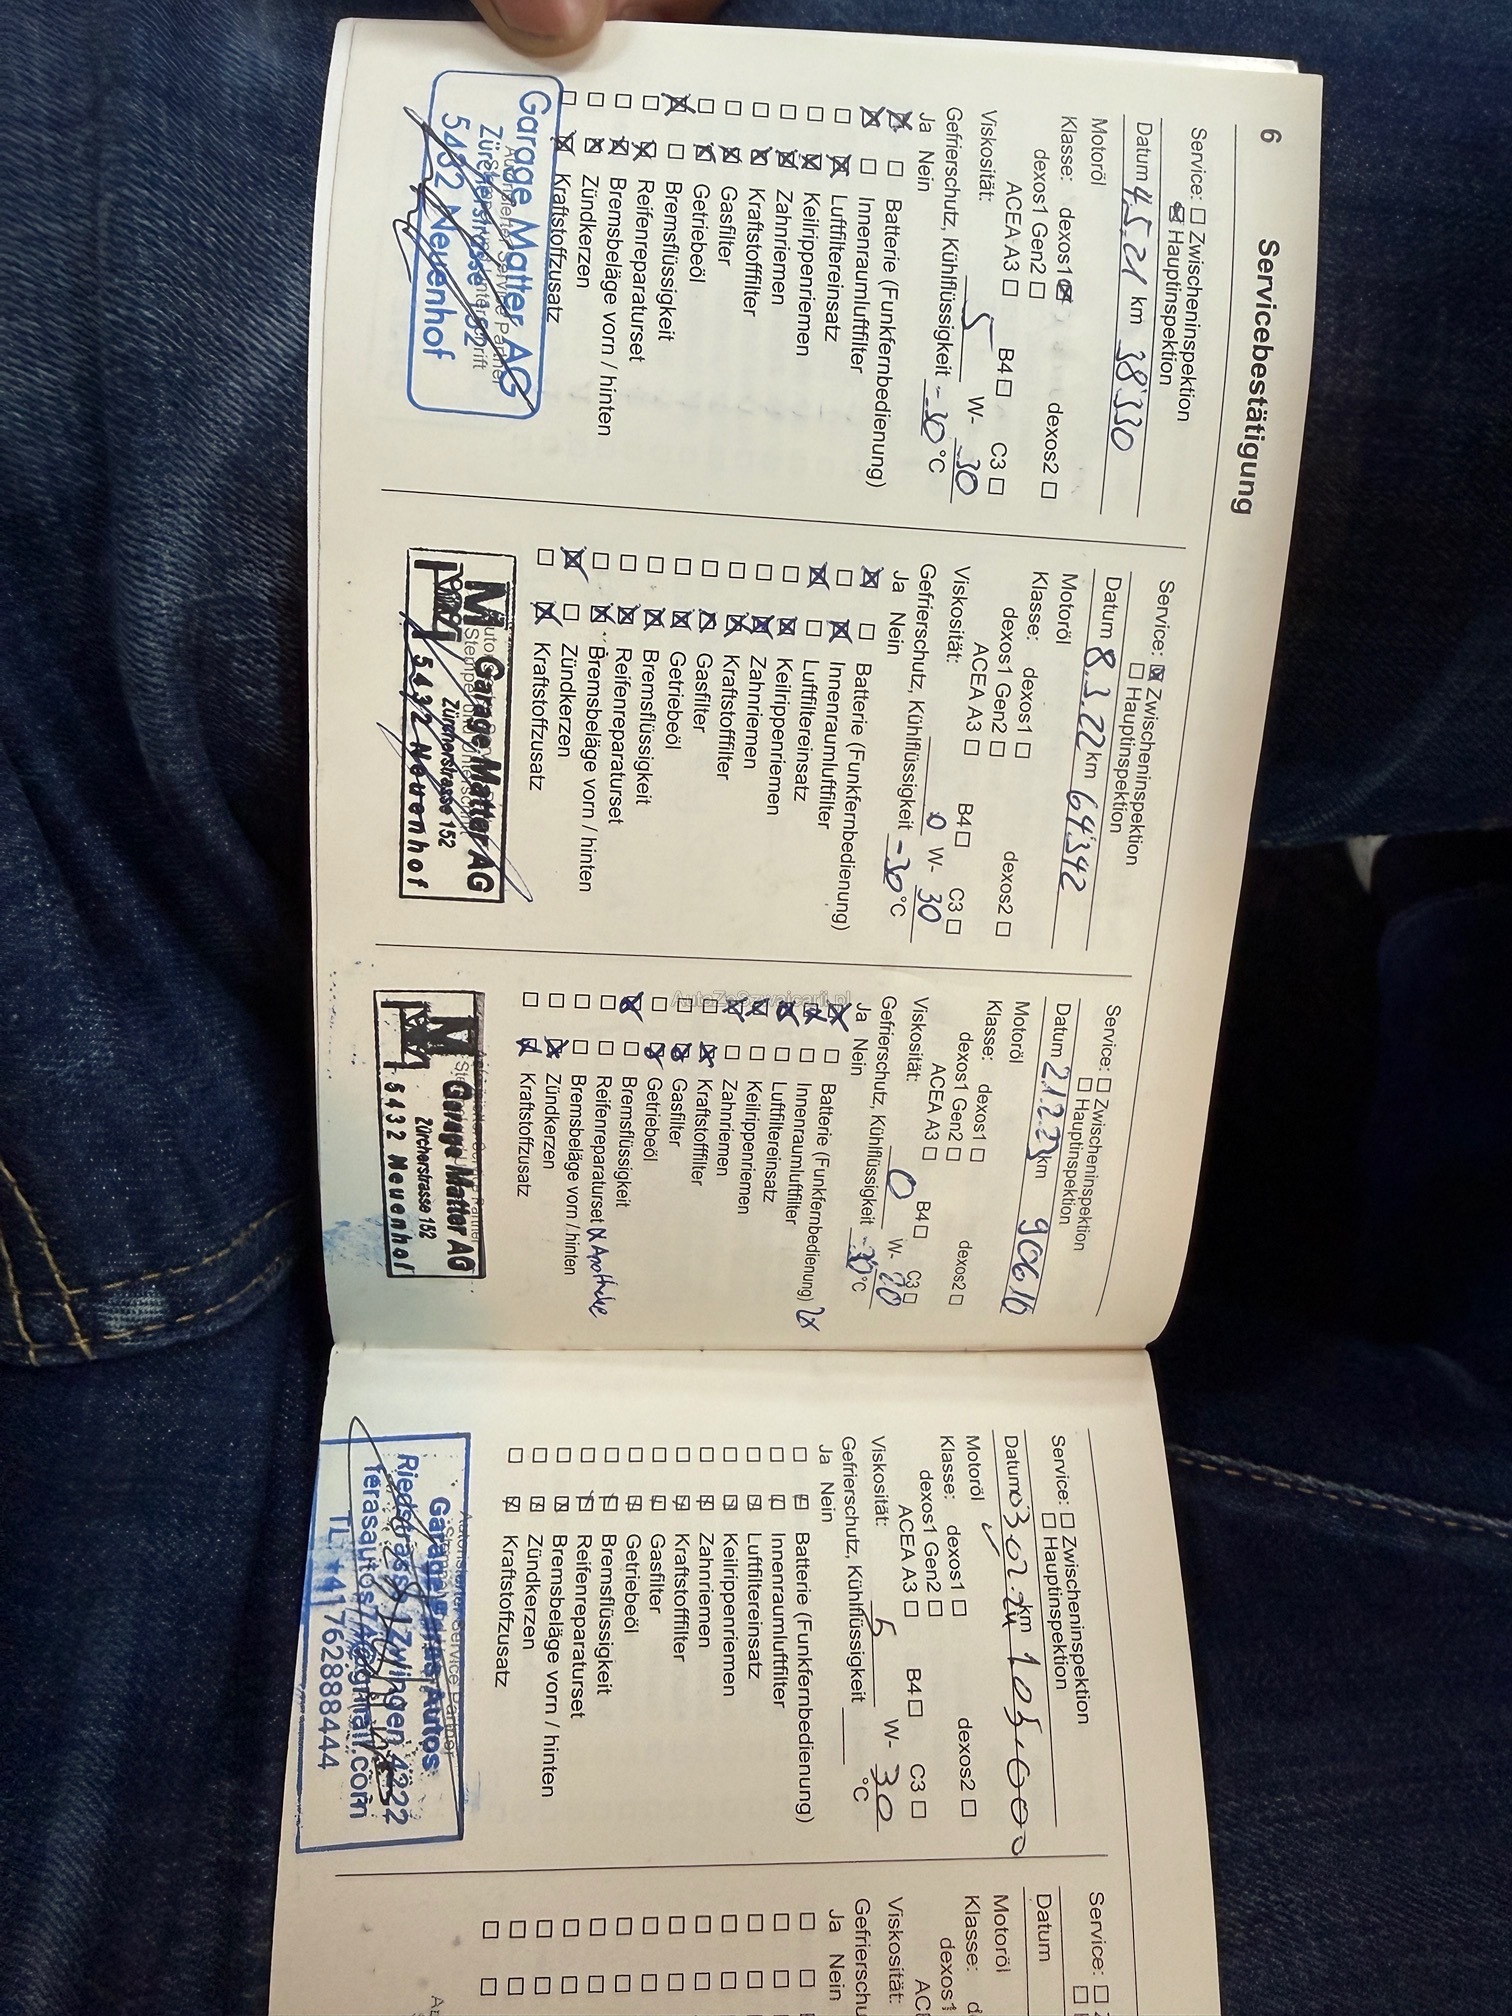 6 Servicebestätigung
Service: ☐ Zwischeninspektion
☒ Hauptinspektion
Datum 4.5.21 km 38'330
Motoröl
Klasse: dexos1 ☒ dexos2 ☐
dexos1 Gen2 ☐
ACEA A3 ☐ B4 ☐ C3 ☐
Viskosität: 5 W- 30
Gefrierschutz, Kühlflüssigkeit -30 °C
Ja Nein
☒ ☐ Batterie (Funkfernbedienung)
☒ ☐ Innenraumluftfilter
☐ ☒ Luftfiltereinsatz
☐ ☒ Keilrippenriemen
☐ ☒ Zahnriemen
☐ ☒ Kraftstofffilter
☐ ☒ Gasfilter
☐ ☒ Getriebeöl
☒ ☐ Bremsflüssigkeit
☐ ☒ Reifenreparaturset
☐ ☒ Bremsbeläge vorn / hinten
☐ ☒ Zündkerzen
☐ ☒ Kraftstoffzusatz
Garage Matter AG
Zürcherstrasse 152
5432 Neuenhof
Service: ☒ Zwischeninspektion
☐ Hauptinspektion
Datum 8.3.22 km 64'342
Motoröl
Klasse: dexos1 ☐ dexos2 ☐
dexos1 Gen2 ☐
ACEA A3 ☐ B4 ☐ C3 ☐
Viskosität: 0 W- 30
Gefrierschutz, Kühlflüssigkeit -30 °C
Ja Nein
☒ ☐ Batterie (Funkfernbedienung)
☐ ☒ Innenraumluftfilter
☒ ☐ Luftfiltereinsatz
☐ ☒ Keilrippenriemen
☐ ☒ Zahnriemen
☐ ☒ Kraftstofffilter
☐ ☒ Gasfilter
☐ ☒ Getriebeöl
☐ ☒ Bremsflüssigkeit
☐ ☒ Reifenreparaturset
☐ ☒ Bremsbeläge vorn / hinten
☒ ☐ Zündkerzen
☐ ☒ Kraftstoffzusatz
Garage Matter AG
Zürcherstrasse 152
5432 Neuenhof
Service: ☐ Zwischeninspektion
☐ Hauptinspektion
Datum 21.2.23 km 90616
Motoröl
Klasse: dexos1 ☐ dexos2 ☐
dexos1 Gen2 ☐
ACEA A3 ☐ B4 ☐ C3 ☐
Viskosität: 0 W- 20
Gefrierschutz, Kühlflüssigkeit -30 °C
Ja Nein
☒ ☐ Batterie (Funkfernbedienung) 2x
☒ ☐ Innenraumluftfilter
☒ ☐ Luftfiltereinsatz
☒ ☐ Keilrippenriemen
☒ ☐ Zahnriemen
☐ ☒ Kraftstofffilter
☐ ☒ Gasfilter
☐ ☒ Getriebeöl
☒ ☐ Bremsflüssigkeit
☐ ☐ Reifenreparaturset ☒ Apotheke
☐ ☐ Bremsbeläge vorn / hinten
☐ ☒ Zündkerzen
☐ ☒ Kraftstoffzusatz
Garage Matter AG
Zürcherstrasse 152
5432 Neuenhof
AutaZeSzwajcarii.pl
Service: ☐ Zwischeninspektion
☐ Hauptinspektion
Datum 03.02.24 km 105.600
Motoröl ✓
Klasse: dexos1 ☐ dexos2 ☐
dexos1 Gen2 ☐
ACEA A3 ☐ B4 ☐ C3 ☐
Viskosität: 5 W- 30
Gefrierschutz, Kühlflüssigkeit °C
Ja Nein
☐ ☒ Batterie (Funkfernbedienung)
☐ ☒ Innenraumluftfilter
☐ ☒ Luftfiltereinsatz
☐ ☒ Keilrippenriemen
☐ ☒ Zahnriemen
☐ ☒ Kraftstofffilter
☐ ☒ Gasfilter
☐ ☒ Getriebeöl
☐ ☒ Bremsflüssigkeit
☐ ☒ Reifenreparaturset
☐ ☒ Bremsbeläge vorn / hinten
☐ ☒ Zündkerzen
☐ ☒ Kraftstoffzusatz
Autos
Zwingen 4222
TL +41762888444
Service: ☐
Datum
Motoröl
Klasse:
Viskosität:
Ja Nein